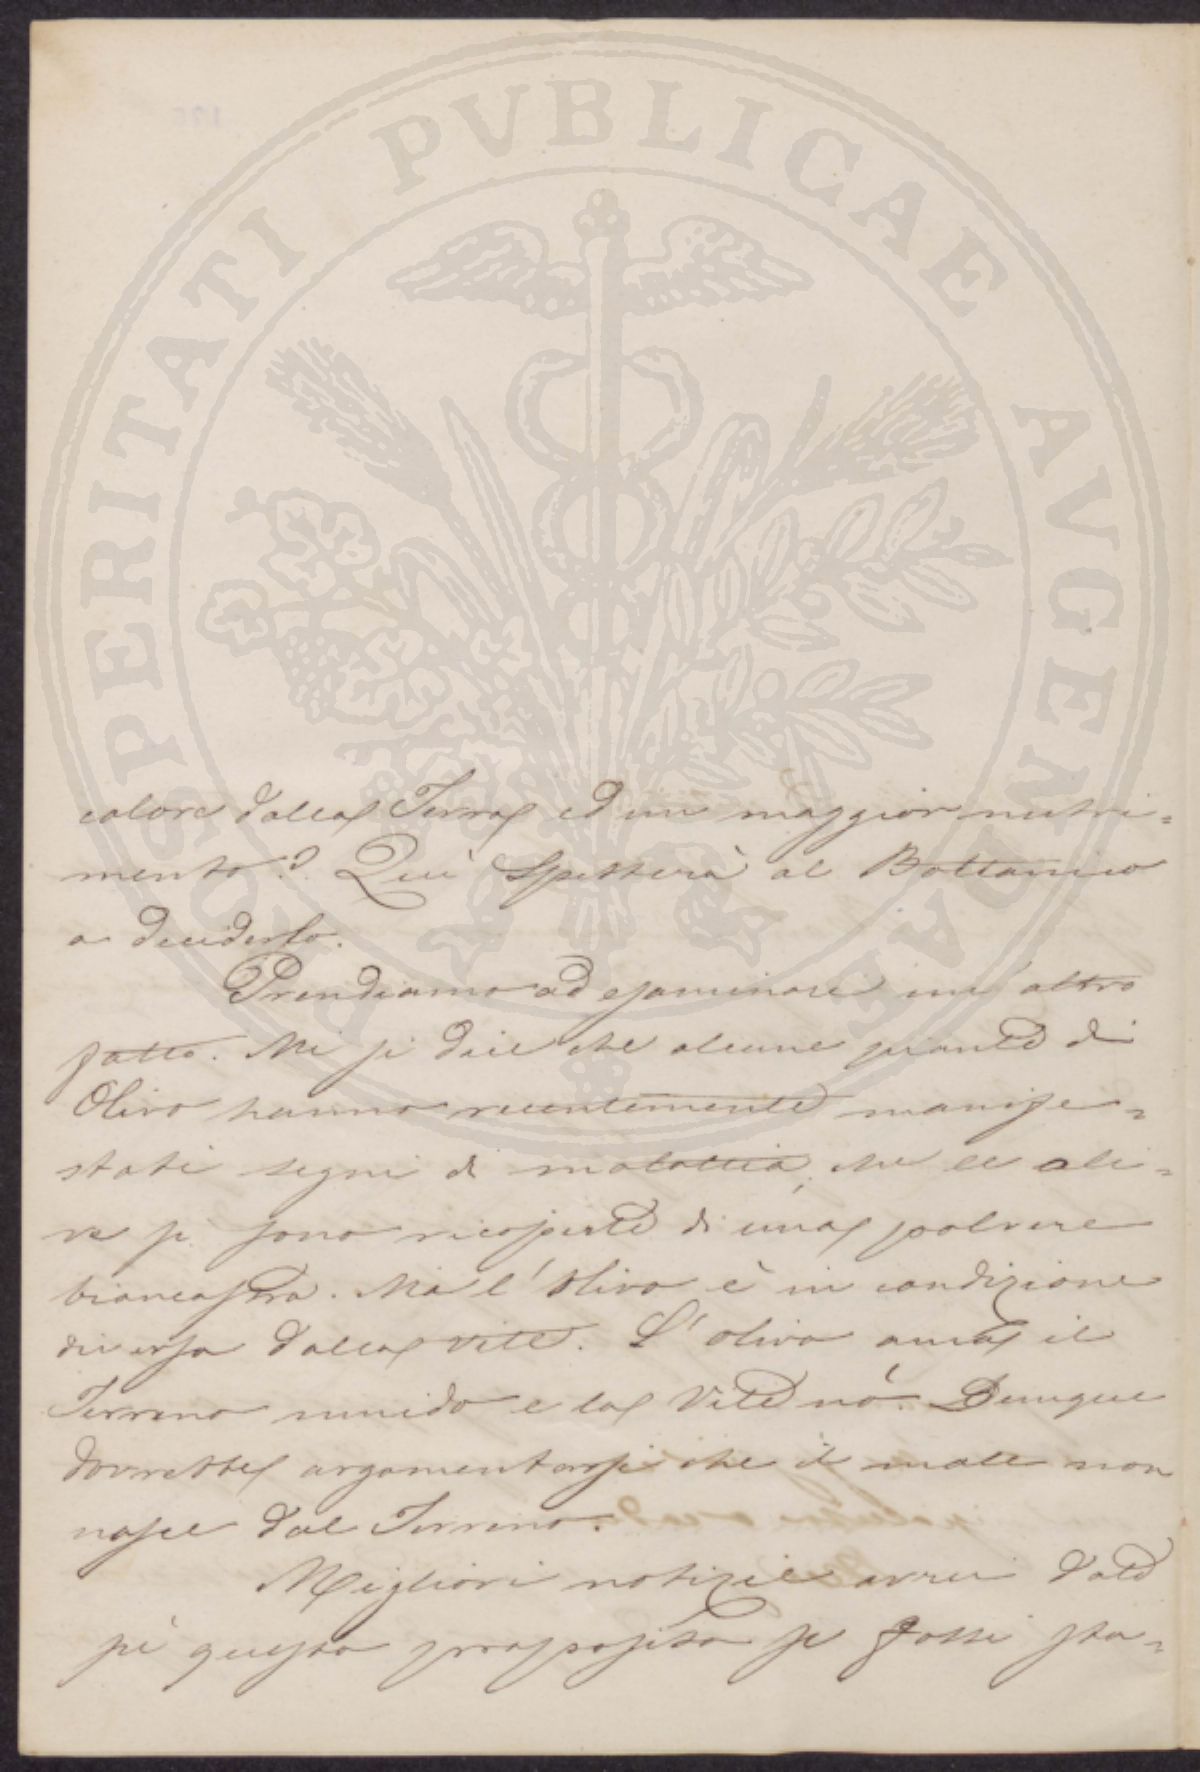 PROSPERITATI PVBLICAE AVGENDAE
calore dalla Terra ed un maggior nutri=
mento? Quì spetterà al Bottanico
a deciderlo.
Prendiamo ad esaminare un' altro
fatto. Mi si dice che alcune piante di
Olivo hanno recentemente manife=
stati segni di malattia, che le oli=
ve si sono ricoperte di una polvere
biancastra. Ma l'Olivo è in condizione
diversa dalla vite. L'olivo ama il
Terreno umido e la Vite nó. Dunque
dovrebbe argomentarsi che il male non
nasce dal Terreno.
Migliori notizie avrei date
sù questo proposito se fossi sta=